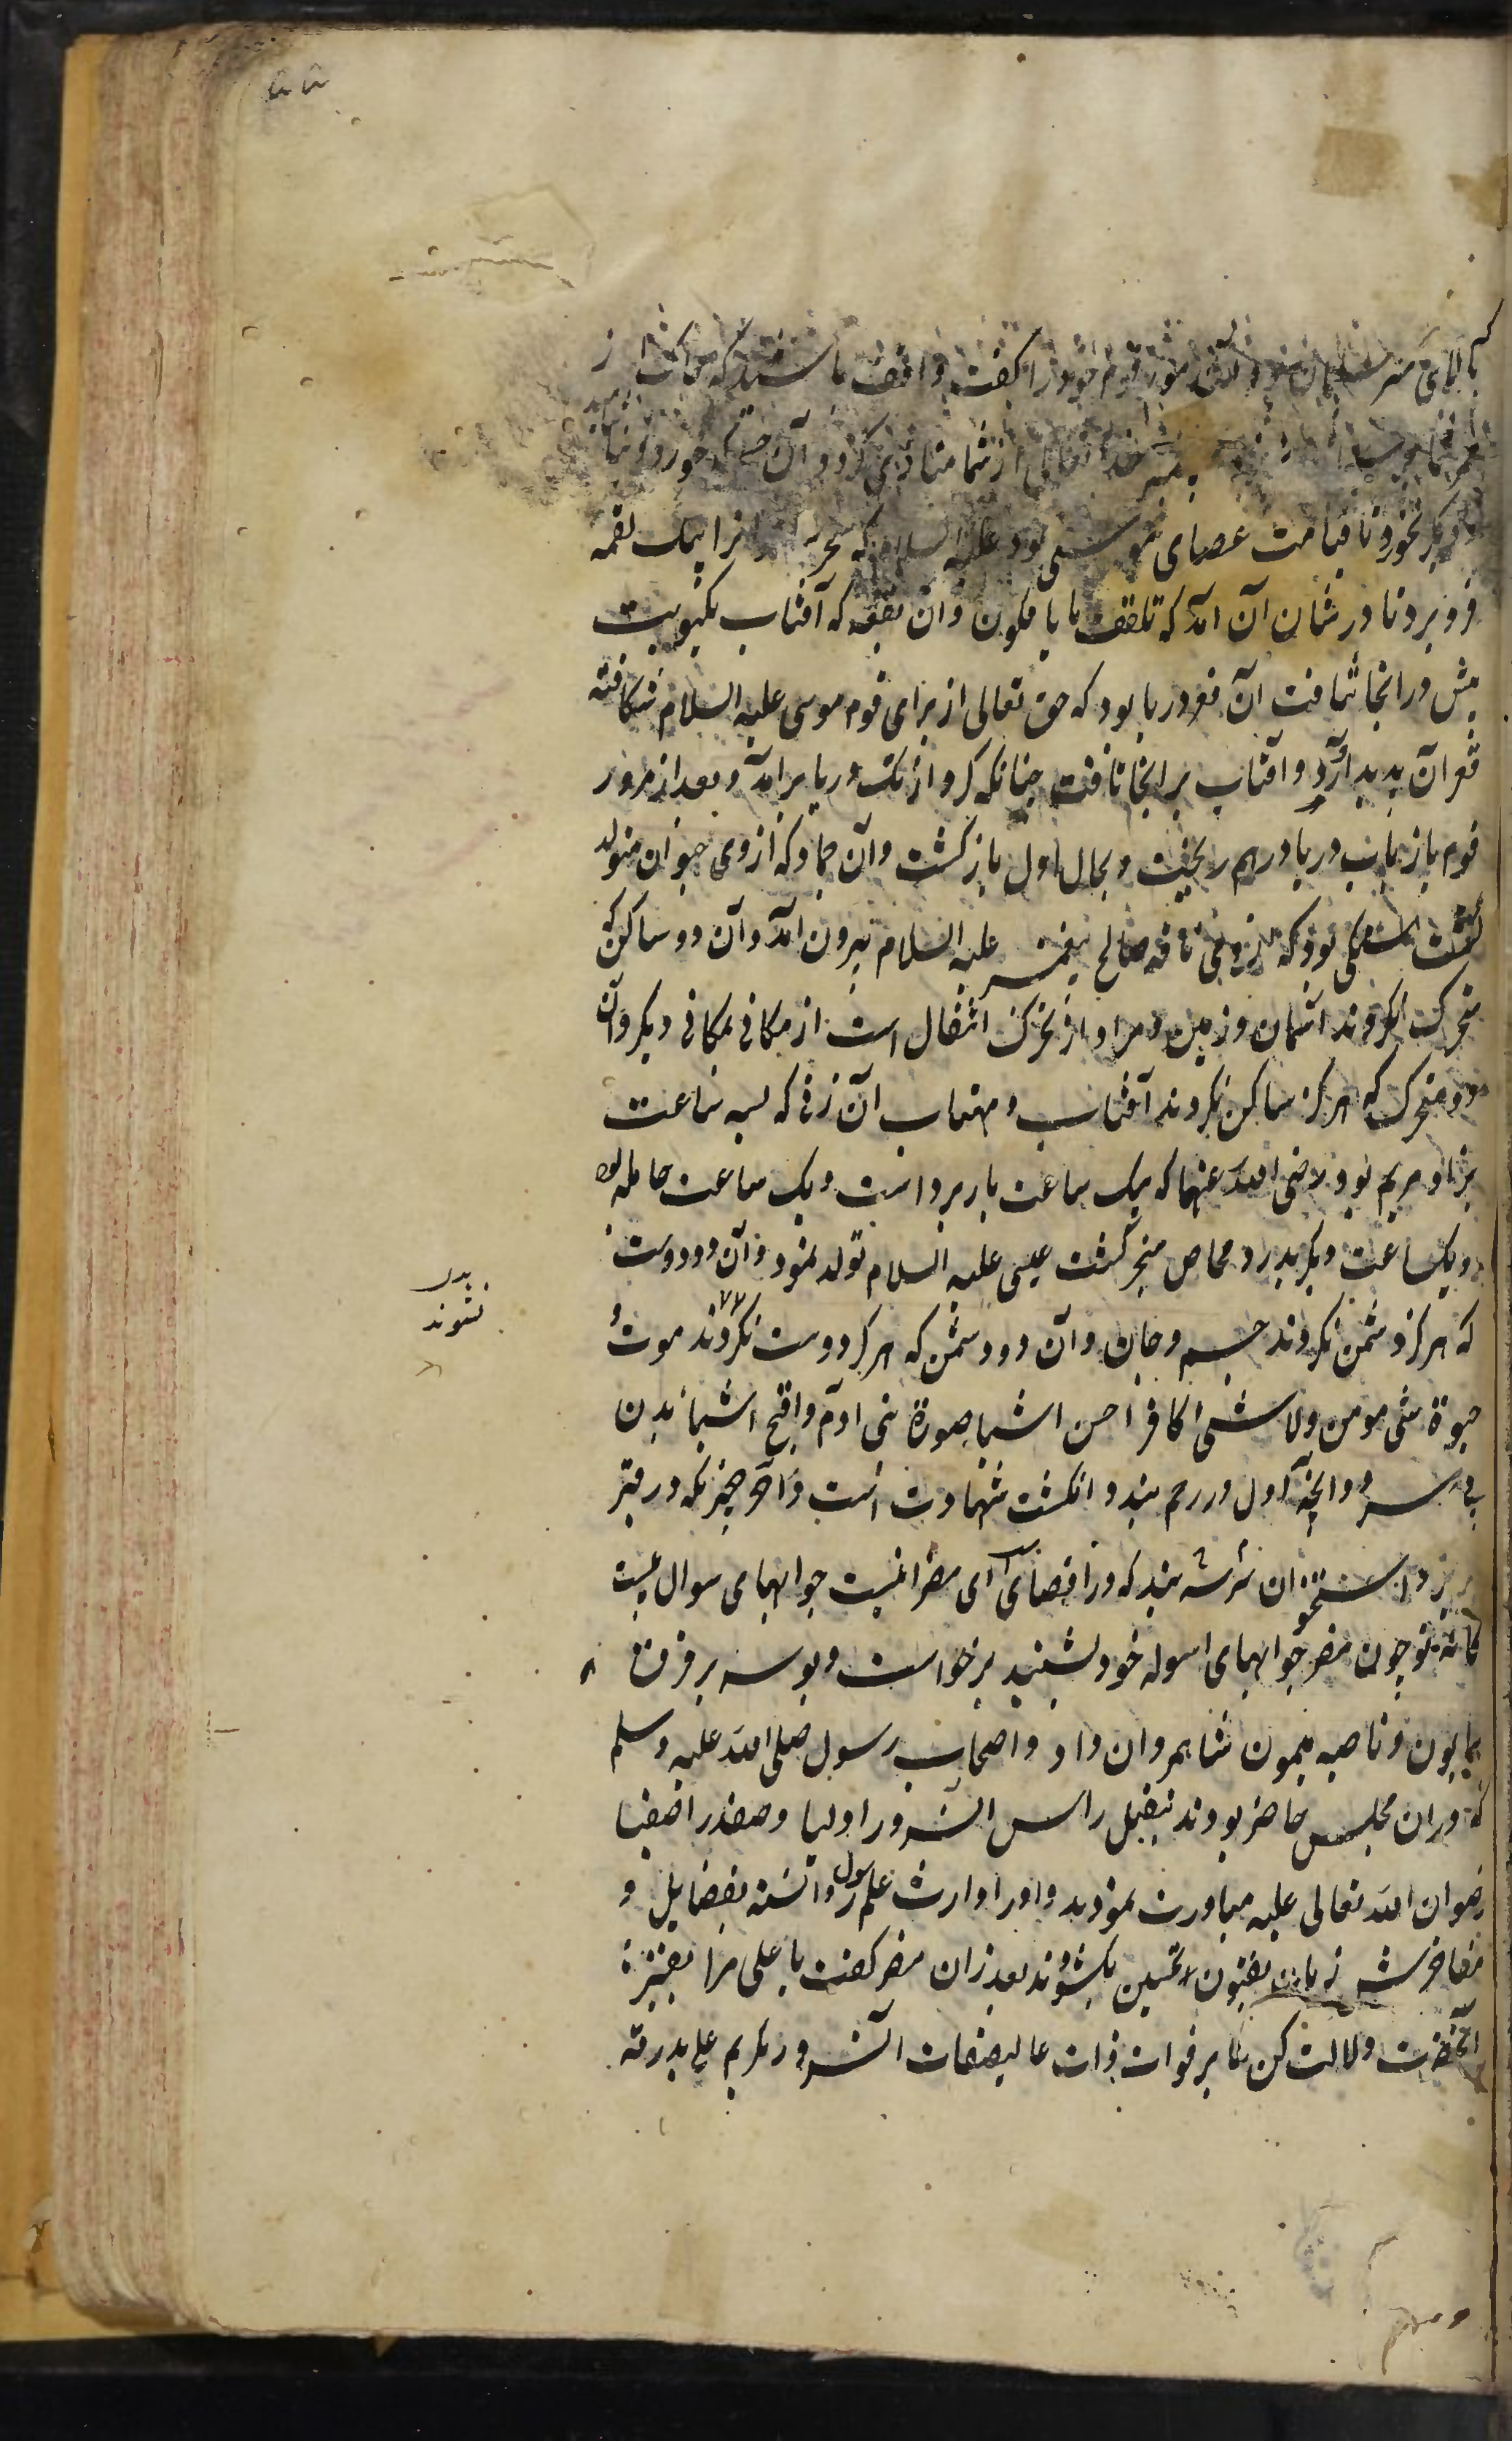 بالای سر سلیمان قوم خود را گفت واقف باشید که
خدا تعالی از شما منادی کرد و آن خورد و
دیگر نخورد تا قیامت عصای موسی بود علیه السلام که سحره را بیک لقمه
فرو برد تا در شان آن آمد که تلقف ما یافکون و آن بقعه که آفتاب یکنوبت
بیش در انجا نتافت آن قعر دریا بود که حق تعالی از برای قوم موسی علیه السلام شکافته
قعر آن پدید آورد و آفتاب بر انجا تافت چنانکه کرد از تک دریا برآمد و بعد از مرور
قوم باز باب دریا درهم ریخت و بحال اول باز گشت و آن جماد که از وی حیوان متولد
گشت سنگی بود که از وی ناقه صالح پیغمبر علیه السلام بیرون آمد و آن دو ساکن که
متحرک نگردند آسمان و زمین و مراد از تحرک انتقال است از مکانی بمکانی دیگر و آن
دو متحرک که هرگز ساکن نگردند آفتاب و مهتاب آن زنی که بسه ساعت
بزاد مریم بود رضی الله عنها که یک ساعت بار برداشت و یک ساعت حامله بود
و یکساعت دیگر بدرد مخاض منجر گشت عیسی علیه السلام تولد نمود و آن دو دوست
که هرگز دشمن نگردند جسم و جان و آن دو دشمن که هرگز دوست نگردند موت و
حیوة شی مومن و لا شی کافر احسن اشیا صورة بنی آدم و اقبح اشیا بدن
بی سر و آنچه اول در رحم بندد انگشت شهادت است و آخر چیزیکه در قبر
بریزد استخوان سر شه بند که در اقصای ای مضر اینست جوابهای سوال بیست
کانه تو چون مضر جوابهای اسوله خود بشنید برخواست و بوسه بر فرق
همایون و ناصیه میمون شاه مردان داد و اصحاب رسول صلی الله علیه و سلم
که دران مجلس حاضر بودند بتقبیل راس آنسرور اولیا و صفدر اصفیا
رضوان الله تعالی علیه مبادرت نمودند و او را وارث علم رسول دانسته بفضایل و
مفاخرش زبان بفنون تحسین بگشودند بعد ازان مضر گفت یا علی مرا بقبر
آنحضرت دلالت کن تا بر فوات ذات عالیصفات آنسرور بگریم علی بدرقه
بدل
نشوند